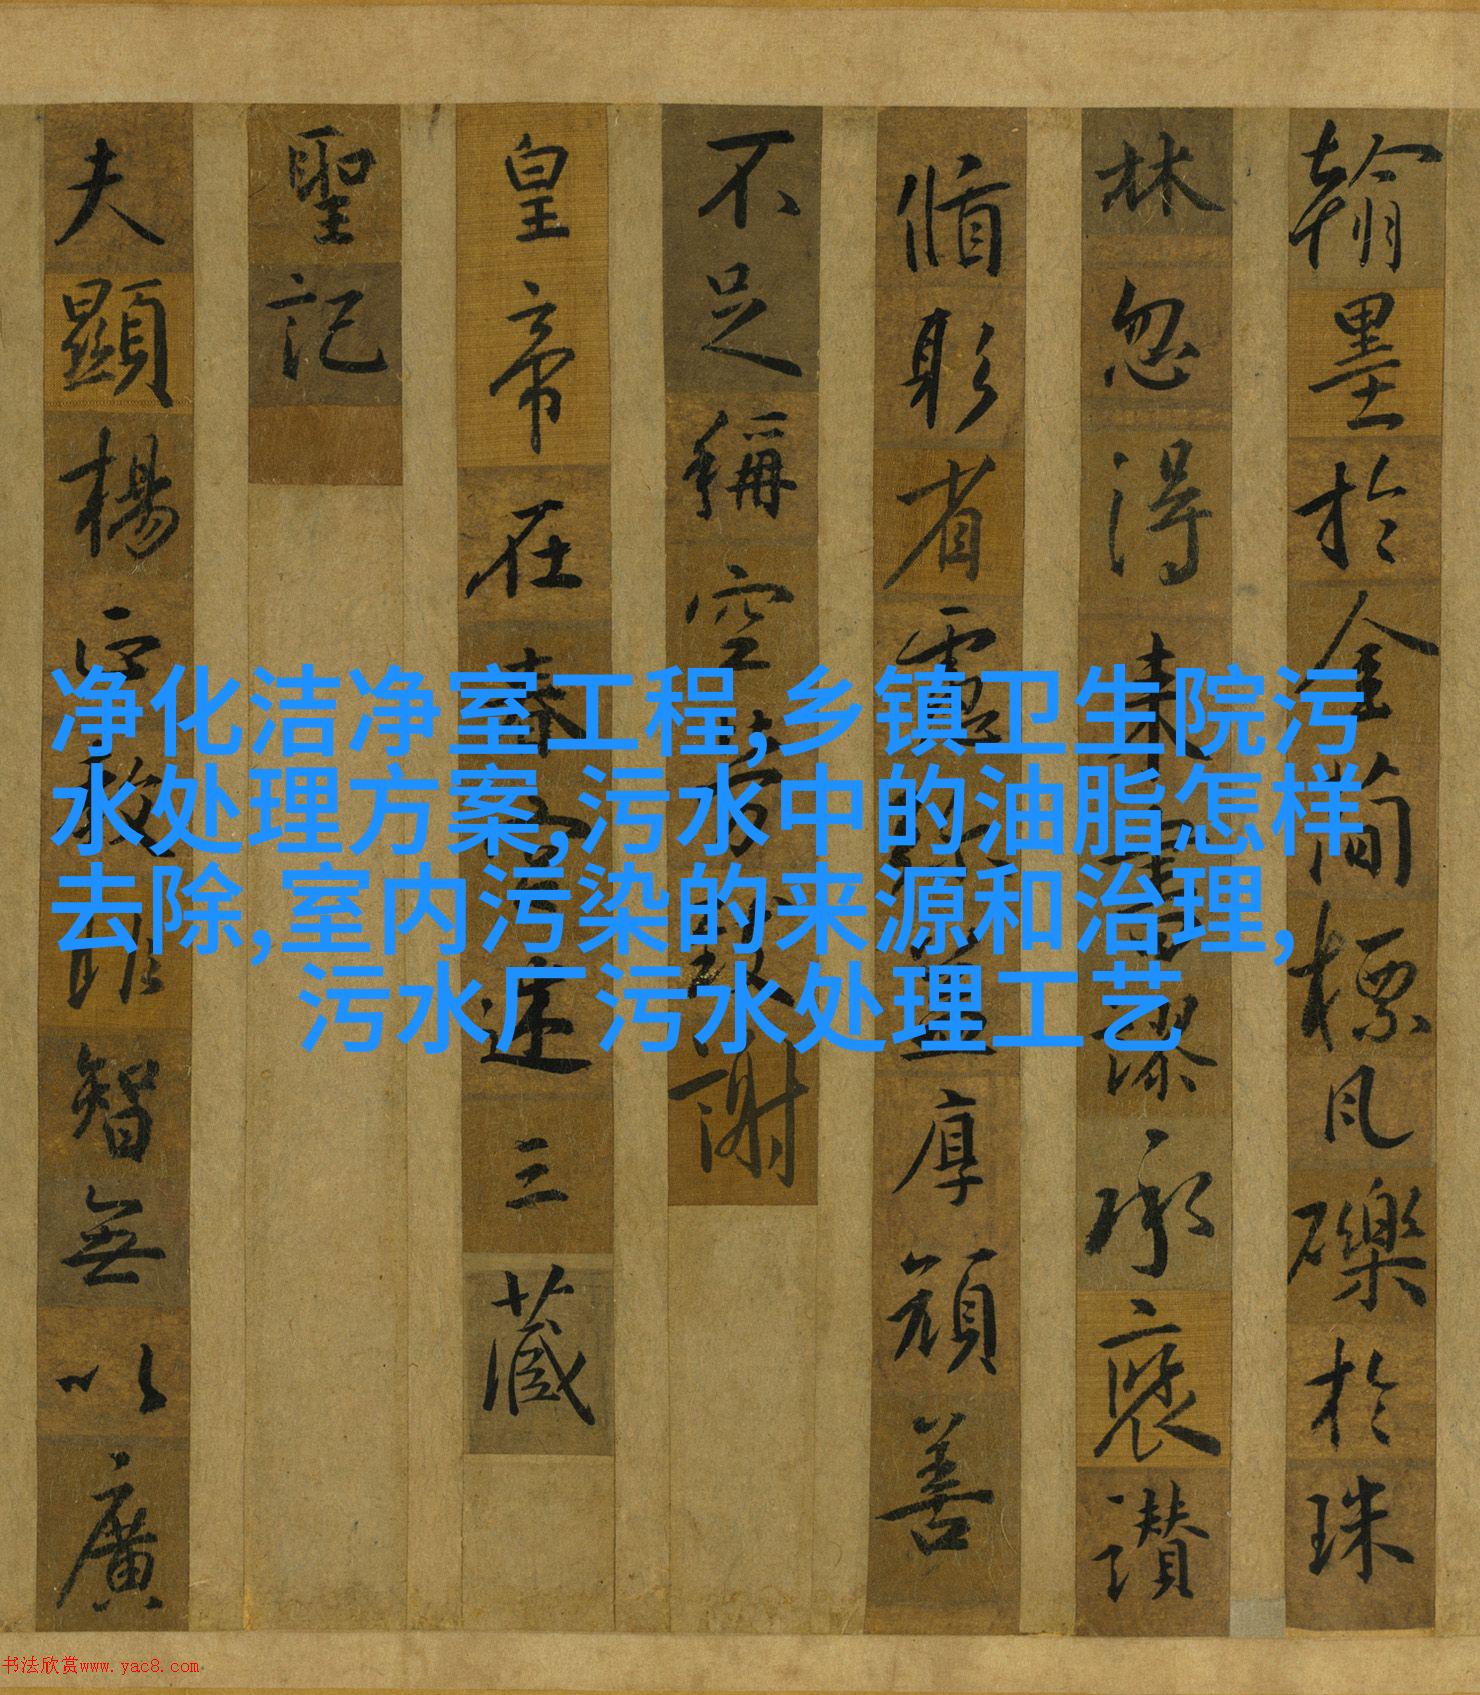 翰墨於金簡標瓦礫於珠
林忽得來書謬承褒讚
循躬省慮弥益厚顏善
不足稱空勞致謝
皇帝在春宮述三藏
聖記
夫顯楊正教非智無以廣
净化洁净室工程,乡镇卫生院污
水处理方案,污水中的油脂怎样
去除,室内污染的来源和治理,
污水厂污水处理工艺
书法欣赏www.yac8.com